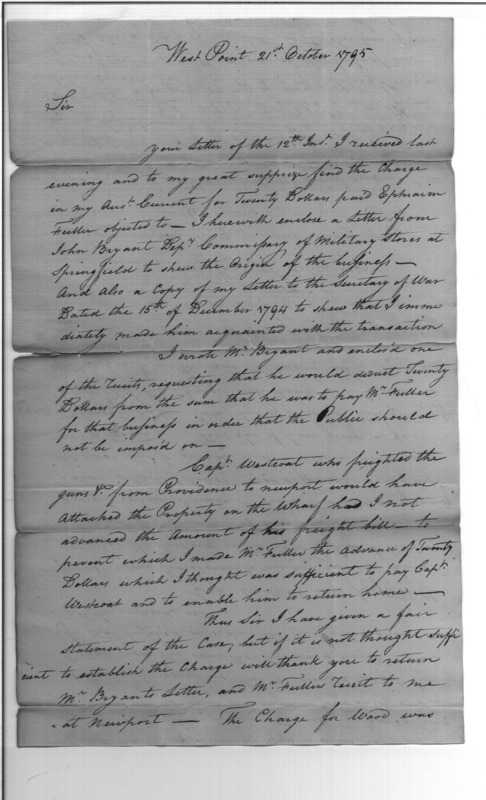 West Point 21st October 1795
Sir
your Letter of the 12th Inst. I received last
evening and to my great supprize find the Charge
in my Acct. Current for Twenty Dollars paid Ephraim
Fuller objected to — I herewith enclose a Letter from
John Bryant Depy. Commissary of Military Stores at
Springfield to shew the Origin of the business —
And also a Copy of my Letter to the Secretary of War
Dated the 15th of December 1794 to shew that I imme
diately made him acquainted with the transaction
I wrote Mr. Bryant and enclos'd one
of the receits, requesting that he would deduct Twenty
Dollars from the sum that he was to pay Mr. Fuller
for that business in order that the Public should
not be impos'd on —
Capt. Westcoat who frighted the
guns &c from Providence to newport would have
Attached the Property on the Wharf had I not
advanced the Amount of his freight bill — to
prevent which I made Mr. Fuller the Advance of Twenty
Dollars which I thought was sufficient to pay Capt.
Westcoat and to enable him to return home —
Thus Sir I have given a fair
statement of the Case, but if it is not thought suffi
cient to establish the Charge will thank you to return
Mr. Bryants Letter, and Mr. Fullers receit to me
at Newport — The Charge for Wood was